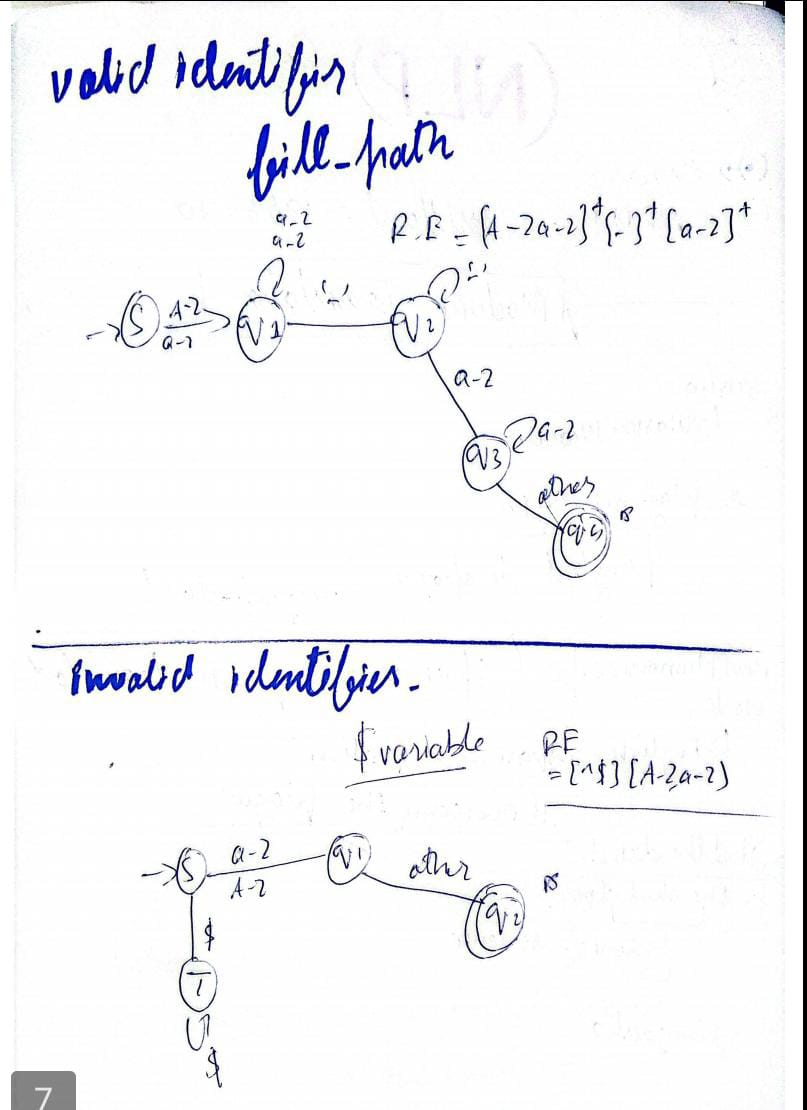 valid identifier
fill-path
a-z
a-z
R.E = [A-Za-z]+ [-]+ [a-z]+
S A-Z a-z q1 '-' q2 '-'
a-z
q3 a-z
other
q4
Invalid identifier.
$ variable
RE
= [^$] [A-Z,a-z]
S a-z A-Z q1 other q2
$
T
$
7